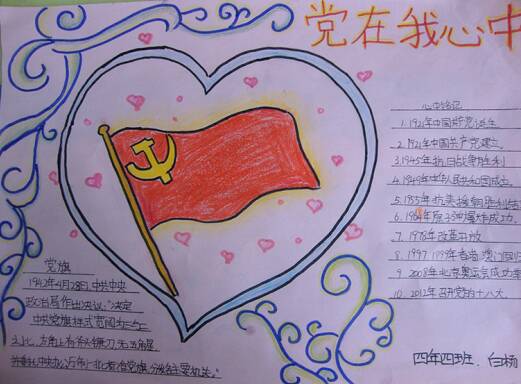 党在我心中
心中铭记
1.1921年中国共产党诞生
2.1921年中国共产党建立
3.1945年抗日战争胜利
4.1949年中华人民共和国成立。
5.1953年抗美援朝胜利结
6.1964年原子弹爆炸成功。
7.1978年改革开放
8.1997 1999年香港澳门回归
9.2008年北京奥运会成功举
10.2012年召开党的十八大。
党旗
1942年4月28日,中共中央
政治局作出决议:"决定
中共党旗样式宽阔为三与二
之比,左角上有斧头镰刀,无五角星
党旗,分给主要机关。"
四年四班 白杨